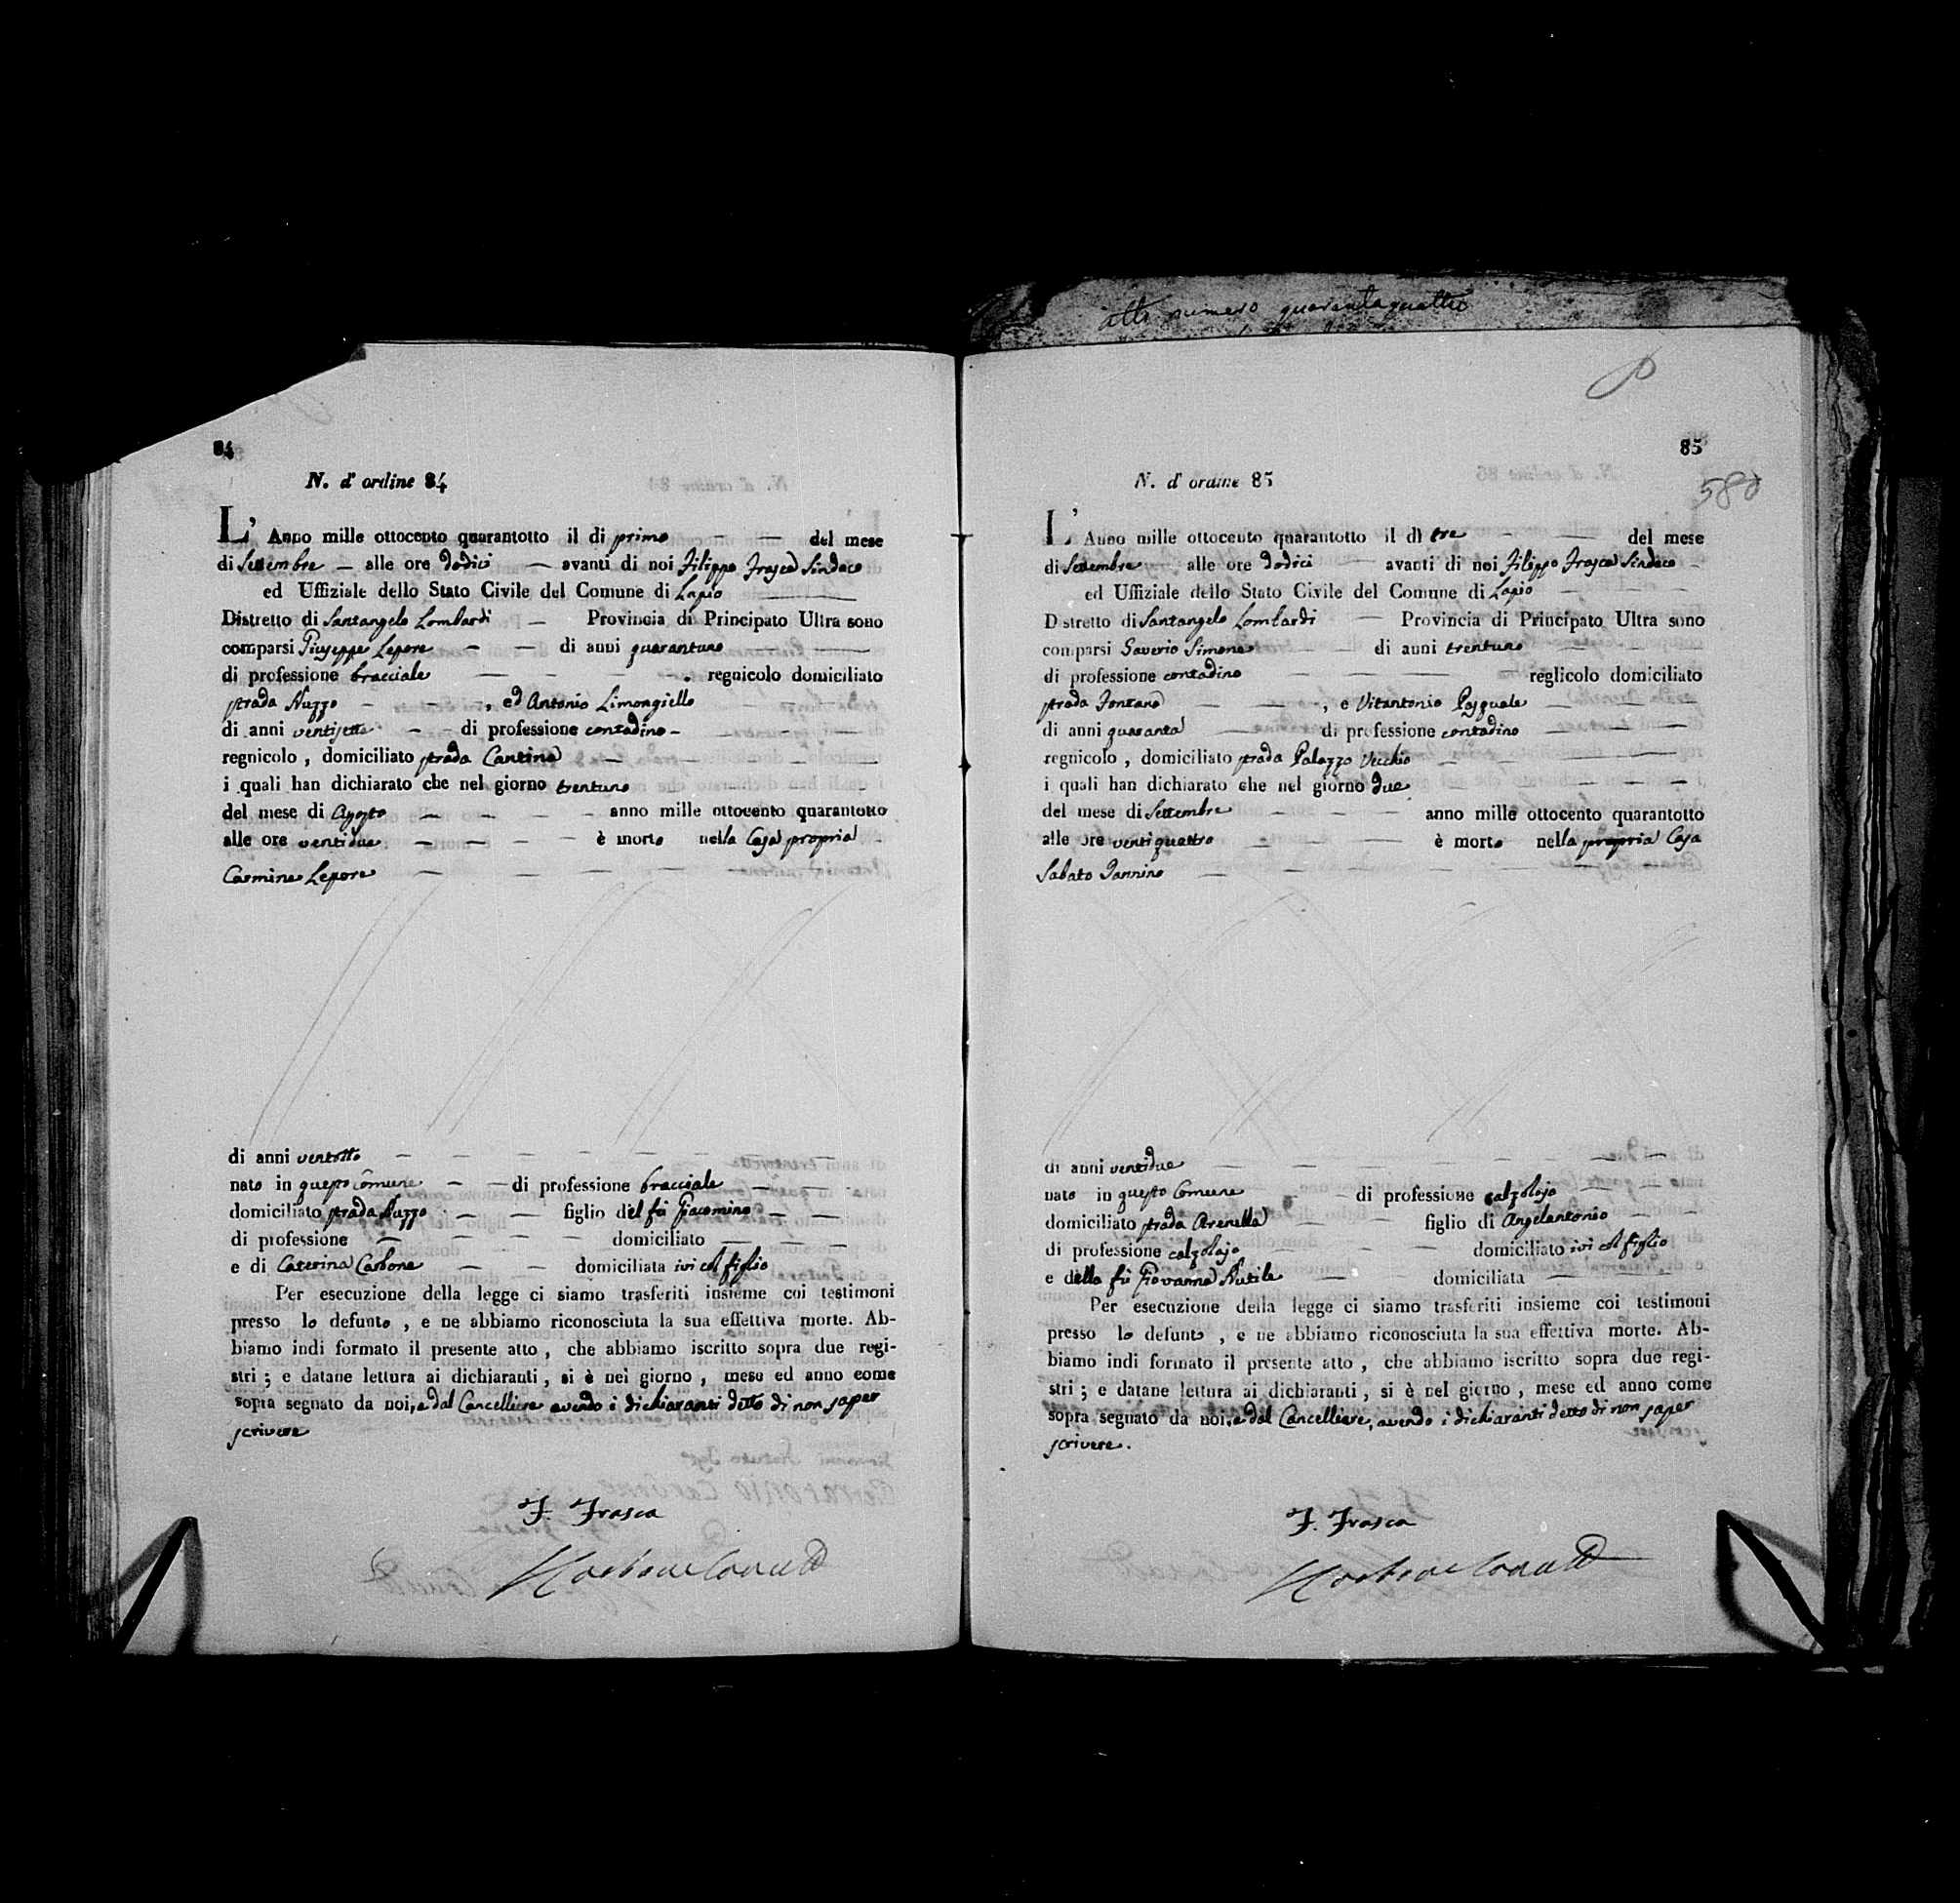 84
N. d' ordine 84
L' Anno mille ottocento quarantotto il di primo del mese
di Settembre alle ore dodici avanti di noi Filippo Frasca Sindaco
ed Uffiziale dello Stato Civile del Comune di Lapio
Distretto di Santangelo Lombardi Provincia di Principato Ultra sono
comparsi Giuseppe Lepore di anni quarantuno
di professione bracciale regnicolo domiciliato
strada Nuzzo , ed Antonio Limongiello
di anni ventisette di professione contadino
regnicolo , domiciliato strada Cantina
i quali han dichiarato che nel giorno trentuno
del mese di Agosto anno mille ottocento quarantotto
alle ore ventidue è morto nella Casa propria
Carmine Lepore
di anni ventotto
nato in questo Comune di professione bracciale
domiciliato strada Nuzzo figlio del fu Giacomino
di professione domiciliato
e di Caterina Carbone domiciliata ivi col figlio
Per esecuzione della legge ci siamo trasferiti insieme coi testimoni
presso lo defunto , e ne abbiamo riconosciuta la sua effettiva morte. Ab-
biamo indi formato il presente atto , che abbiamo iscritto sopra due regi-
stri ; e datane lettura ai dichiaranti , si è nel giorno , mese ed anno come
sopra segnato da noi, e dal Cancelliere avendo i dichiaranti detto di non saper
scrivere
F. Frasca
atto numero quarantaquattro
85
580
N. d' ordine 85
L' Anno mille ottocento quarantotto il dì tre del mese
di Settembre alle ore dodici avanti di noi Filippo Frasca Sindaco
ed Uffiziale dello Stato Civile del Comune di Lapio
Distretto di Santangelo Lombardi Provincia di Principato Ultra sono
comparsi Saverio Simone di anni trentuno
di professione contadino reglicolo domiciliato
strada Fontana , e Vitantonio Pasquale
di anni quaranta di professione contadino
regnicolo , domiciliato strada Palazzo Vecchio
i quali han dichiarato che nel giorno due
del mese di Settembre anno mille ottocento quarantotto
alle ore ventiquattro è morto nella propria Casa
Sabato Iannino
di anni ventidue
nato in questo Comune di professione calzolajo
domiciliato strada Arenella figlio di Angelantonio
di professione calzolajo domiciliato ivi col figlio
e della fu Giovanna Nutile domiciliata
Per esecuzione della legge ci siamo trasferiti insieme coi testimoni
presso lo defunto , e ne abbiamo riconosciuta la sua effettiva morte. Ab-
biamo indi formato il presente atto , che abbiamo iscritto sopra due regi-
stri ; e datane lettura ai dichiaranti , si è nel giorno , mese ed anno come
sopra segnato da noi, e dal Cancelliere, avendo i dichiaranti detto di non saper
scrivere.
F. Frasca